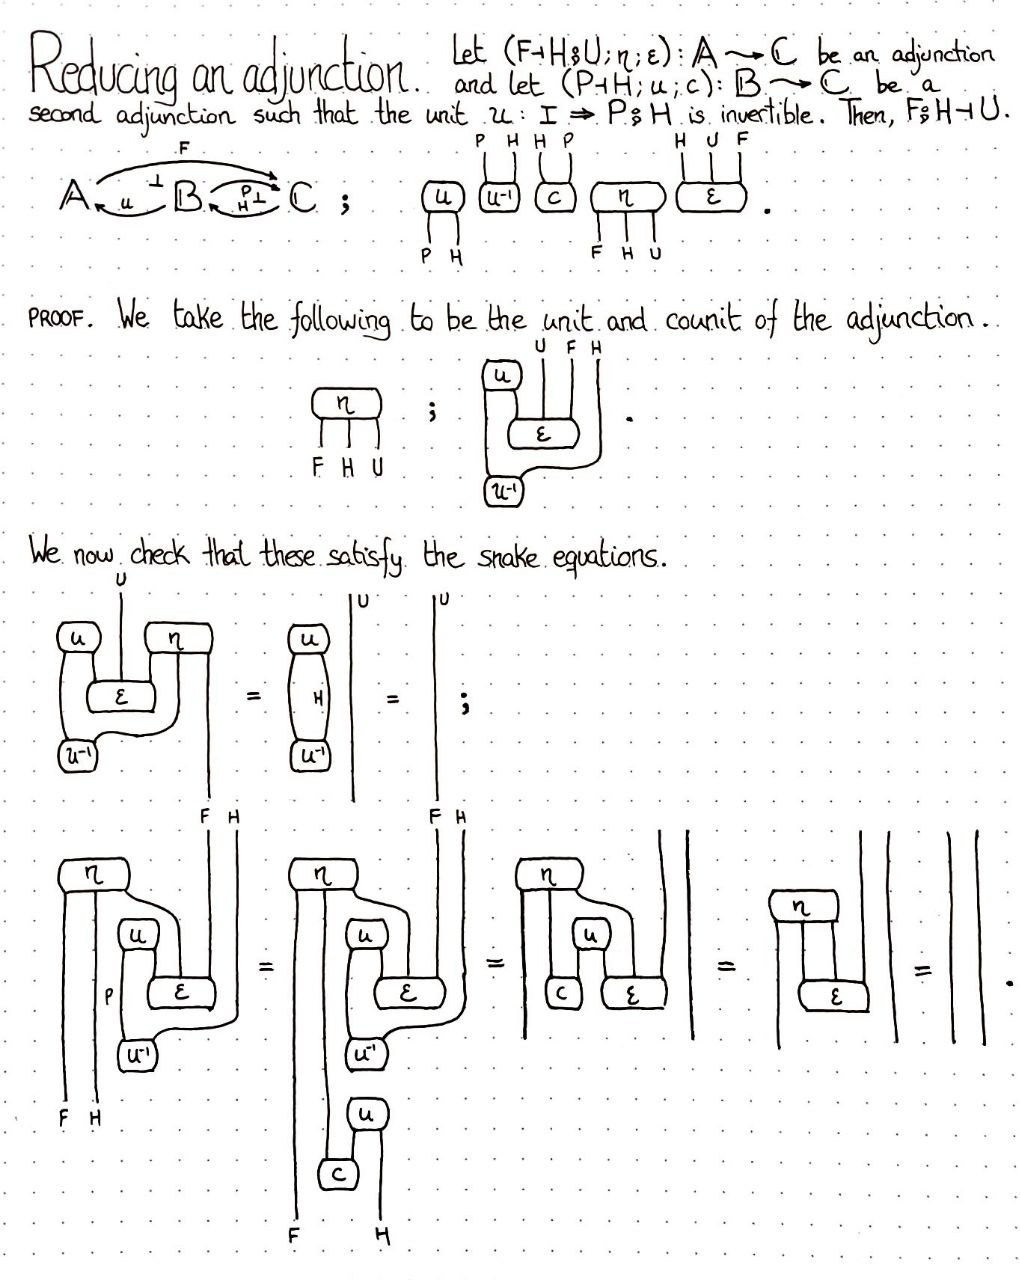 Reducing an adjunction. Let (F⊣H⨟U;η;ε): A ⟿ C be an adjunction
and let (P⊣H; u; c): B ⟿ C be a
second adjunction such that the unit u: I ⇒ P⨟H is invertible. Then, F⨟H⊣U.
F P H H P H U F
A ⊥ u B P ⊥ H C ; u u⁻¹ c η ε .
P H F H U
PROOF. We take the following to be the unit and counit of the adjunction.
U F H
u
η ; ε .
F H U
u⁻¹
We now check that these satisfy the snake equations.
U U U
u η u
ε = H = ;
u⁻¹ u⁻¹
F H F H
η η η η
u u u
P ε = ε = c ε = ε = .
u⁻¹ u⁻¹
F H u
c
F H